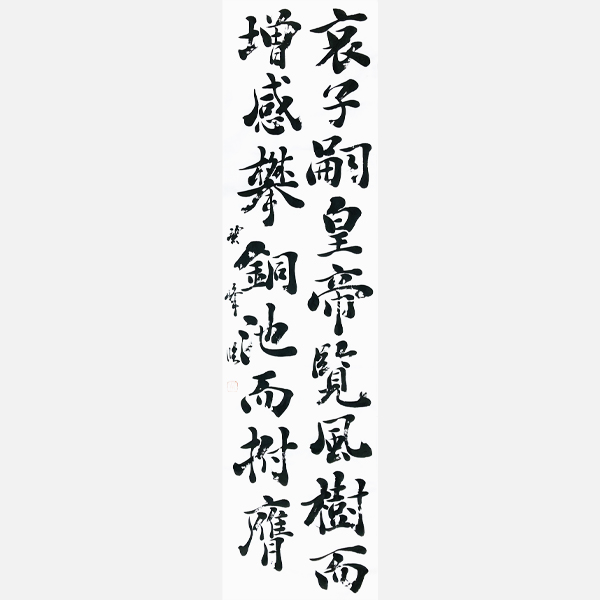 哀子嗣皇帝覽風樹而
增感攀銅池而拊膺